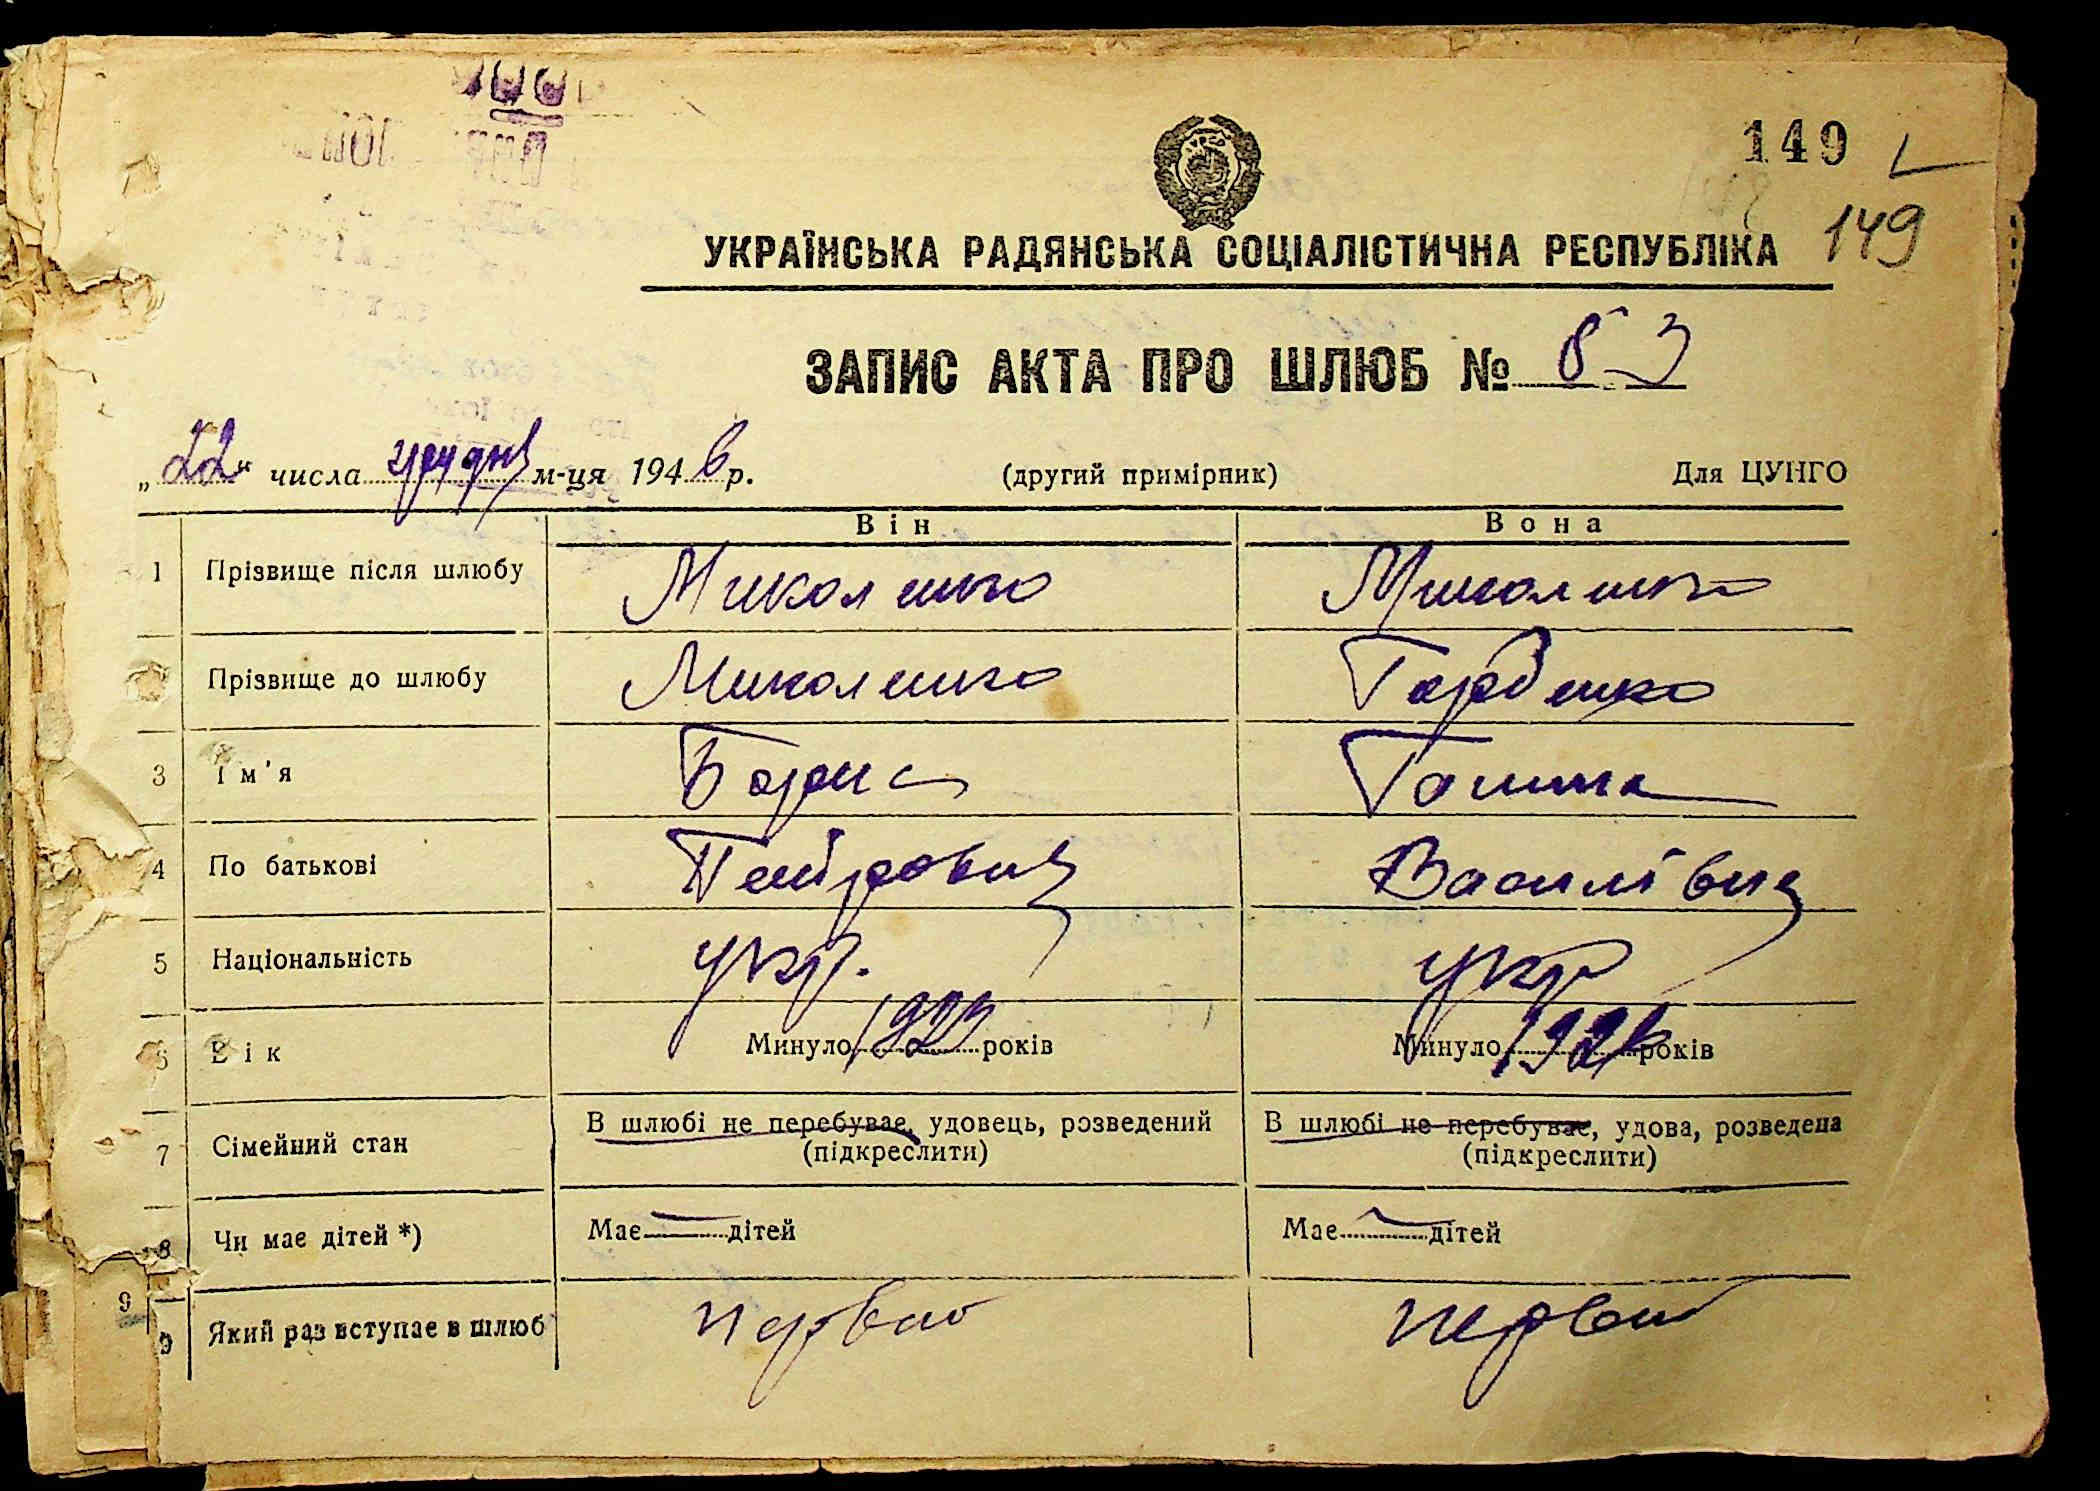 149
149
УКРАЇНСЬКА РАДЯНСЬКА СОЦІАЛІСТИЧНА РЕСПУБЛІКА
ЗАПИС АКТА ПРО ШЛЮБ № 83
„22“ числа грудня м-ця 1946 р. (другий примірник) Для ЦУНГО
Він Вона
1 Прізвище після шлюбу Миколенко Миколенко
Прізвище до шлюбу Миколенко Горбенко
3 Ім'я Борис Галина
4 По батькові Петрович Василівна
5 Національність укр. укр
6 Вік Минуло 1923 років Минуло 192 років
7 Сімейний стан В шлюбі не перебуває, удовець, розведений В шлюбі не перебуває, удова, розведена
(підкреслити) (підкреслити)
8 Чи має дітей *) Має — дітей Має — дітей
9 9 Який раз вступає в шлюб первий первий